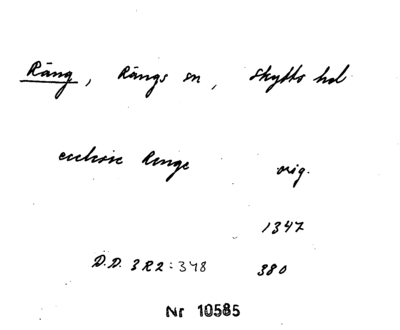 Räng, Rängs sn, Skytts hd
ecclesie Renge orig.
1347
D.D. 3R2:348 380
Nr 10585